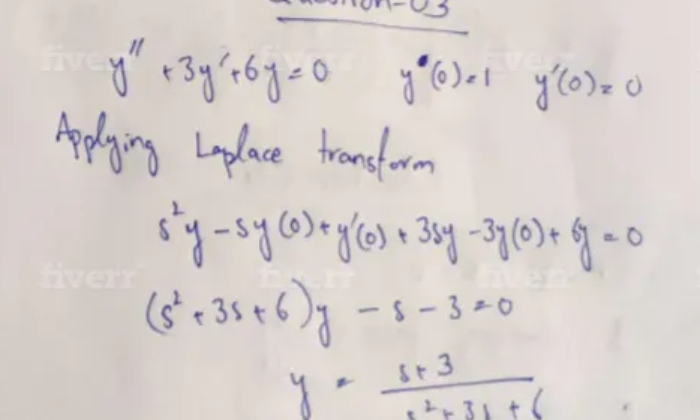 Question-03
y'' + 3y' + 6y = 0 y(0) = 1 y'(0) = 0
Applying Laplace transform
s²y - sy(0) + y'(0) + 3sy - 3y(0) + 6y = 0
(s² + 3s + 6)y - s - 3 = 0
y = s + 3
s² + 3s + 6
fiverr fiverr fiverr
fiverr fiverr fiverr